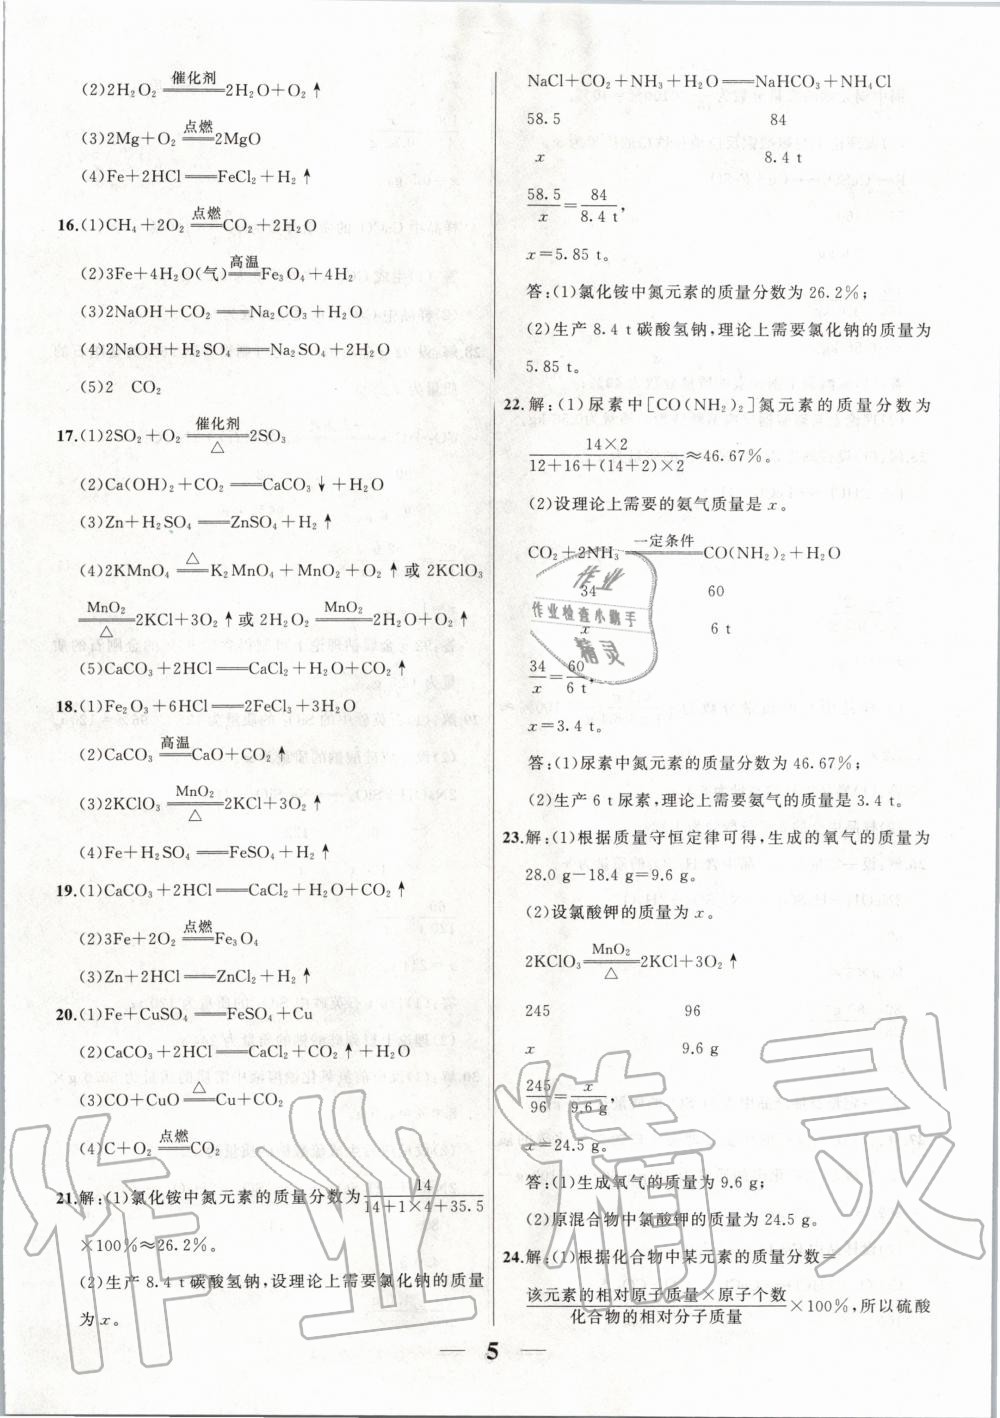 (2)2H₂O₂ 催化剂 ══ 2H₂O+O₂↑
(3)2Mg+O₂ 点燃 ══ 2MgO
(4)Fe+2HCl══FeCl₂+H₂↑
16.(1)CH₄+2O₂ 点燃 ══ CO₂+2H₂O
(2)3Fe+4H₂O(气) 高温 ══ Fe₃O₄+4H₂
(3)2NaOH+CO₂══Na₂CO₃+H₂O
(4)2NaOH+H₂SO₄══Na₂SO₄+2H₂O
(5)2 CO₂
17.(1)2SO₂+O₂ 催化剂 ══ △ 2SO₃
(2)Ca(OH)₂+CO₂══CaCO₃↓+H₂O
(3)Zn+H₂SO₄══ZnSO₄+H₂↑
(4)2KMnO₄ △ ══ K₂MnO₄+MnO₂+O₂↑或 2KClO₃
MnO₂ ══ △ 2KCl+3O₂↑或 2H₂O₂ MnO₂ ══ 2H₂O+O₂↑
(5)CaCO₃+2HCl══CaCl₂+H₂O+CO₂↑
18.(1)Fe₂O₃+6HCl══2FeCl₃+3H₂O
(2)CaCO₃ 高温 ══ CaO+CO₂↑
(3)2KClO₃ MnO₂ ══ △ 2KCl+3O₂↑
(4)Fe+H₂SO₄══FeSO₄+H₂↑
19.(1)CaCO₃+2HCl══CaCl₂+H₂O+CO₂↑
(2)3Fe+2O₂ 点燃 ══ Fe₃O₄
(3)Zn+2HCl══ZnCl₂+H₂↑
20.(1)Fe+CuSO₄══FeSO₄+Cu
(2)CaCO₃+2HCl══CaCl₂+CO₂↑+H₂O
(3)CO+CuO △ ══ Cu+CO₂
(4)C+O₂ 点燃 ══ CO₂
21.解:(1)氯化铵中氮元素的质量分数为 14/(14+1×4+35.5)
×100%≈26.2%。
(2)生产 8.4 t碳酸氢钠,设理论上需要氯化钠的质量
为 x。
NaCl+CO₂+NH₃+H₂O══NaHCO₃+NH₄Cl
58.5 84
x 8.4 t
58.5/x=84/8.4 t,
x=5.85 t。
答:(1)氯化铵中氮元素的质量分数为 26.2%;
(2)生产 8.4 t碳酸氢钠,理论上需要氯化钠的质量为
5.85 t。
22.解:(1)尿素中[CO(NH₂)₂]氮元素的质量分数为
14×2/(12+16+(14+2)×2)≈46.67%。
(2)设理论上需要的氨气质量是 x。
CO₂+2NH₃ 一定条件 ══ CO(NH₂)₂+H₂O
34 60
x 6 t
34/x=60/6 t,
x=3.4 t。
答:(1)尿素中氮元素的质量分数为 46.67%;
(2)生产 6 t尿素,理论上需要氨气的质量是 3.4 t。
23.解:(1)根据质量守恒定律可得,生成的氧气的质量为
28.0 g−18.4 g=9.6 g。
(2)设氯酸钾的质量为 x。
2KClO₃ MnO₂ ══ △ 2KCl+3O₂↑
245 96
x 9.6 g
245/96=x/9.6 g,
x=24.5 g。
答:(1)生成氧气的质量为 9.6 g;
(2)原混合物中氯酸钾的质量为 24.5 g。
24.解:(1)根据化合物中某元素的质量分数=
该元素的相对原子质量×原子个数/化合物的相对分子质量×100%,所以硫酸
5
作业
作业检查小助手
精灵
作业精灵